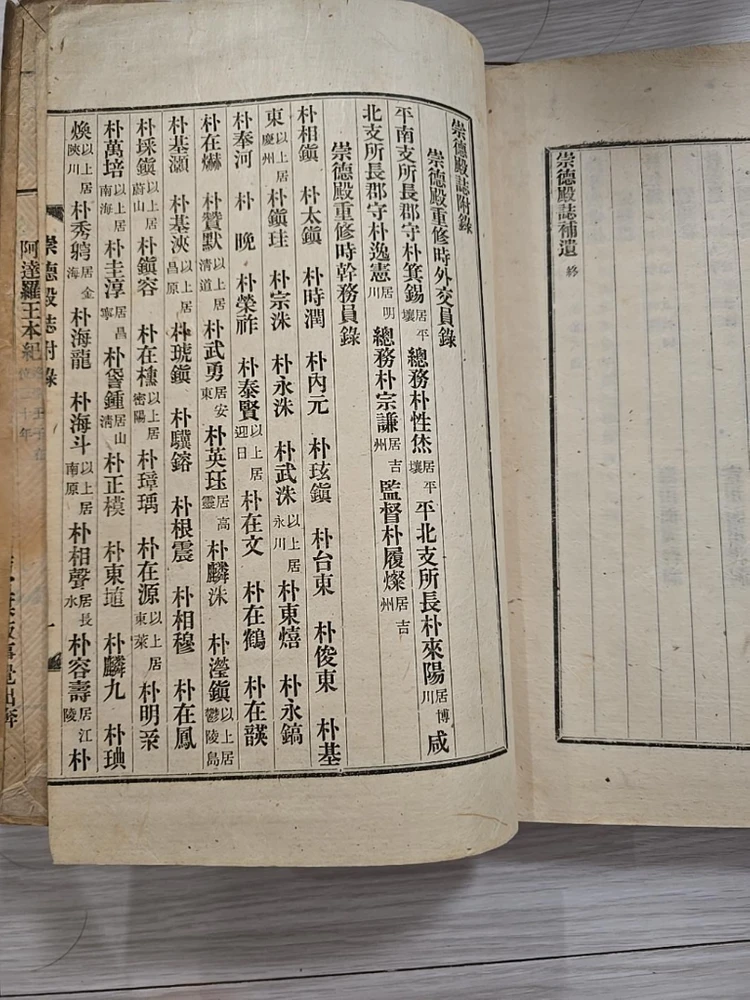 崇德殿誌補遺 終
崇德殿誌附錄
崇德殿重修時外交員錄
平南支所長郡守朴箕錫居平壤 總務朴性烋居平壤 平北支所長朴來陽居博川 咸
北支所長郡守朴逸憲居明川 總務朴宗謙居吉州 監督朴履燦居吉州
崇德殿重修時幹務員錄
朴相鎭 朴太鎭 朴時潤 朴內元 朴玹鎭 朴台東 朴俊東 朴基
東以上居慶州 朴鎭珪 朴宗洙 朴永洙 朴武洙以上居永川 朴東熺 朴永鎬
朴奉河 朴晚 朴榮祚 朴泰賢以上居迎日 朴在文 朴在鶴 朴在韺
朴在爀 朴贊默以上居淸道 朴武勇居安東 朴英珏居高靈 朴麟洙 朴瀅鎭以上居鬱陵島
朴基灝 朴基浹以上居昌原 朴琥鎭 朴驥鎔 朴根震 朴相穆 朴在鳳
朴埰鎭以上居蔚山 朴鎭容 朴在櫄以上居密陽 朴璋瑀 朴在源以上居東萊 朴明
朴萬培以上居南海 朴圭淳居昌寧 朴鍾居山淸 朴正模 朴東 朴麟九 朴琠
煥以上居陜川 朴秀居金海 朴海龍 朴海斗以上居南原 朴相聲居長水 朴容壽居江陵 朴
崇德殿誌附錄 一
阿達羅王本紀